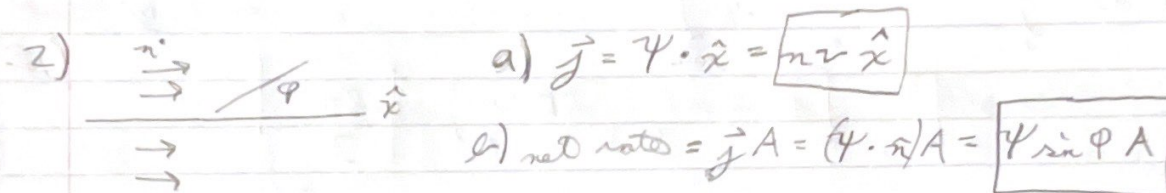 2) n φ x̂
a) j⃗ = Ψ · x̂ = n v x̂
b) net rate = j⃗ A = (Ψ · n̂) A = Ψ sin φ A